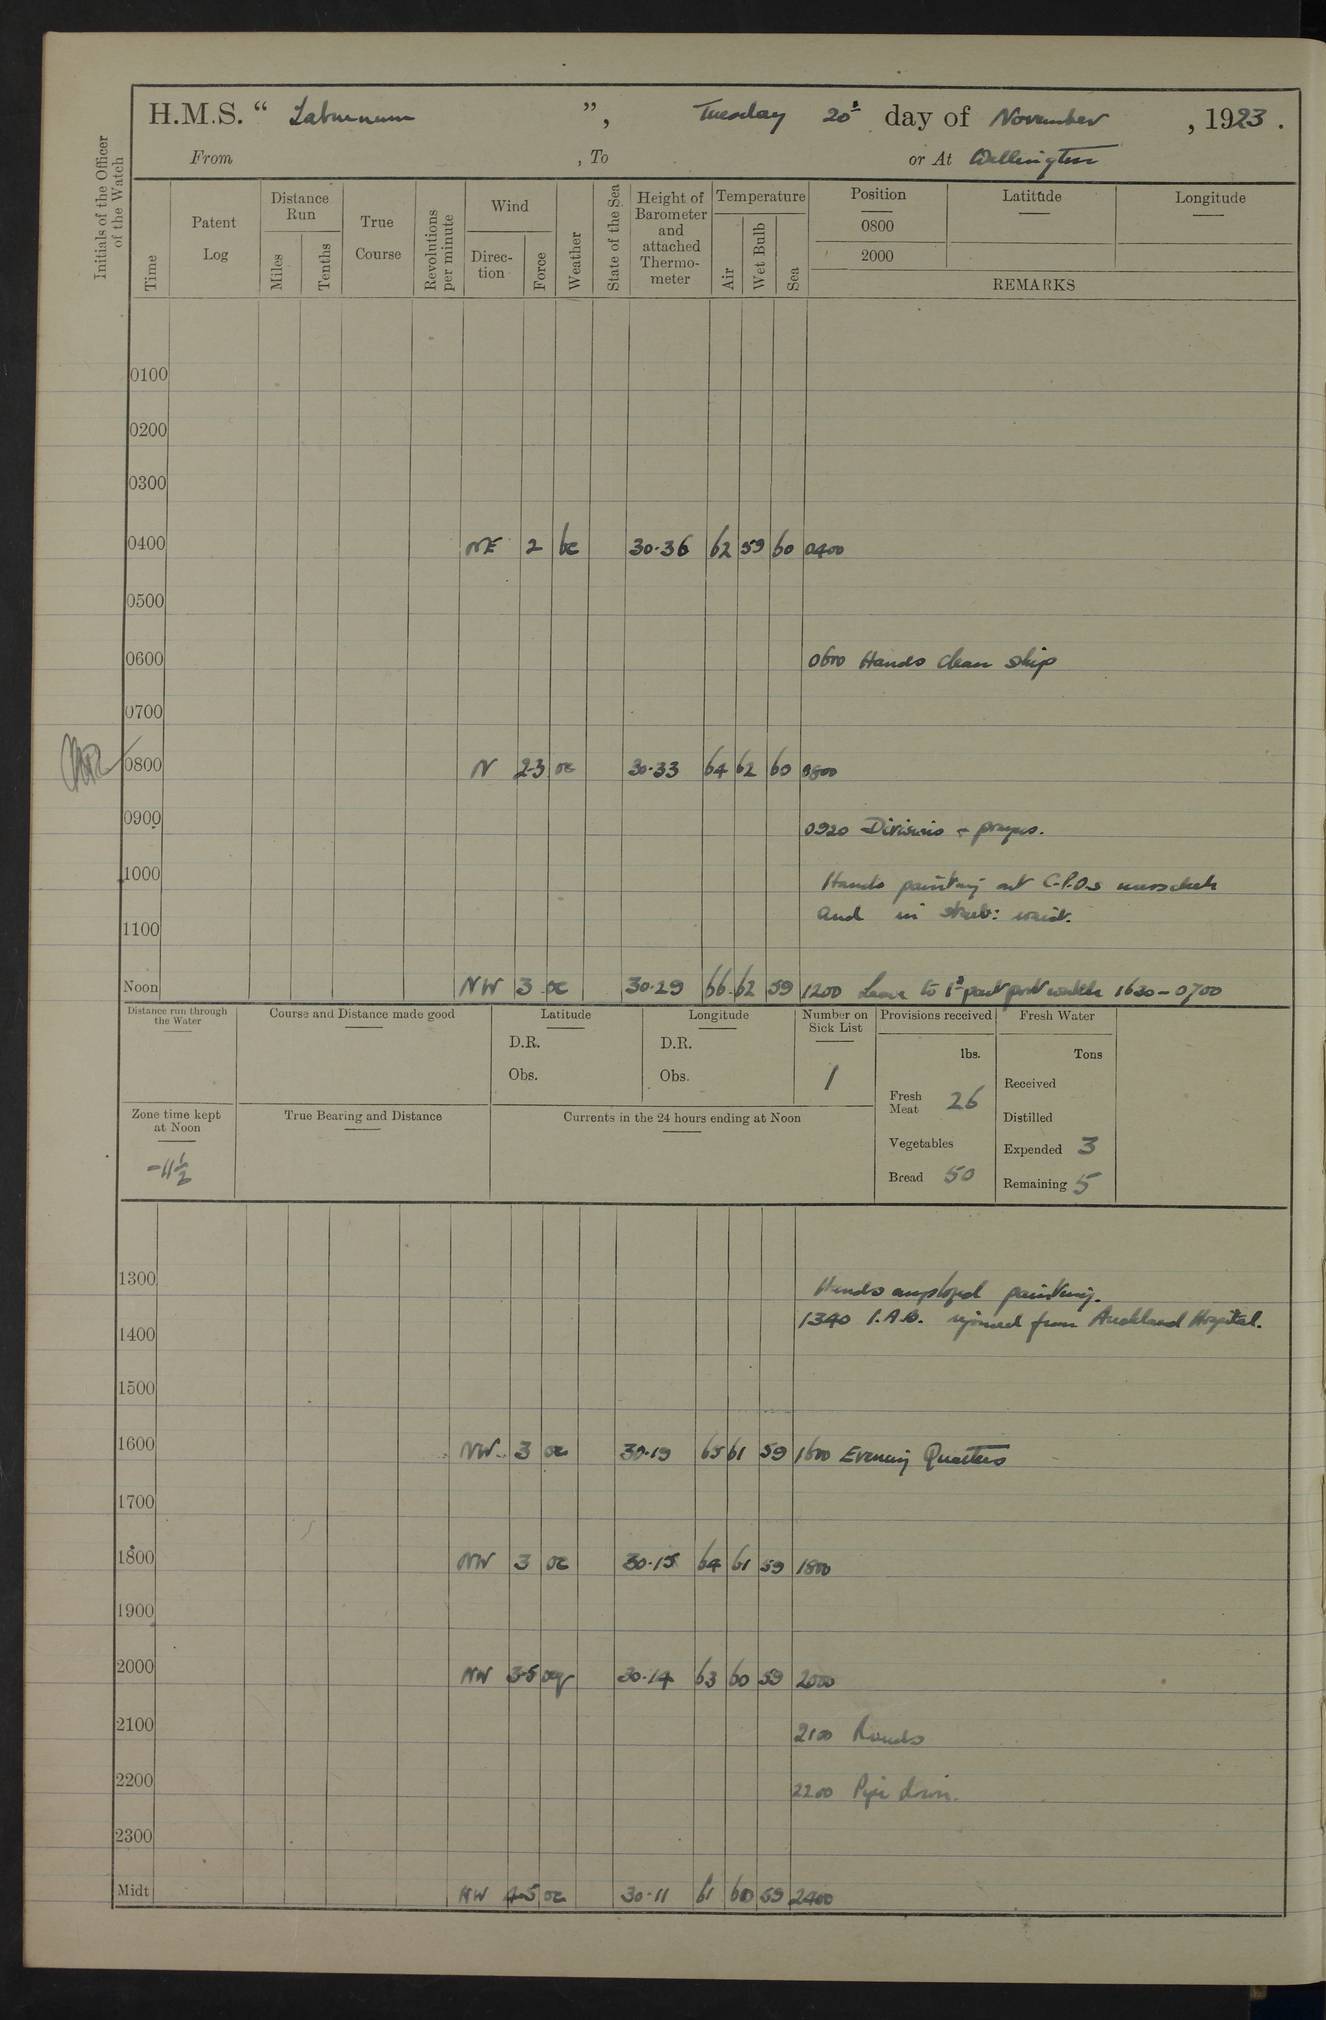 H.M.S. “ Laburnum ”, Tuesday 20th day of November , 1923 .
From , To or At Wellington
Initials of the Officer of the Watch
Time
Patent Log
Distance Run
Miles
Tenths
True Course
Revolutions per minute
Wind
Direc- tion
Force
Weather
State of the Sea
Height of Barometer and attached Thermo- meter
Temperature
Air
Wet Bulb
Sea
Position Latitude Longitude
0800
2000
REMARKS
0100
0200
0300
0400 NE 2 bc 30·36 62 59 60 0400
0500
0600 0600 Hands clean ship
0700
0800 N 2-3 oc 30·33 64 62 60 0800
0900
0920 Divisions + prayers.
1000 Hands painting out C.P.O.s messdeck
and in waist.
1100
Noon NW 3 oc 30·29 66 62 59 1200 Leave to 1st part port watch 1630 - 0700
Distance run through the Water
Course and Distance made good
Latitude
D.R.
Obs.
Longitude
D.R.
Obs.
Number on Sick List
1
Provisions received
lbs.
Fresh Meat 26
Vegetables
Bread 50
Fresh Water
Tons
Received
Distilled
Expended 3
Remaining 5
Zone time kept at Noon
-11½
True Bearing and Distance
Currents in the 24 hours ending at Noon
1300 Hands employed painting.
1340 1.A.B. rejoined from Auckland Hospital.
1400
1500
1600 NW 3 oc 30·19 65 61 59 1600 Evening Quarters
1700
1800 NW 3 oc 30·15 64 61 59 1800
1900
2000 NW 3-5 ocq 30·14 63 60 59 2000
2100 2100 Rounds
2200 2200 Pipe down.
2300
Midt NW 4-5 oc 30·11 61 60 59 2400